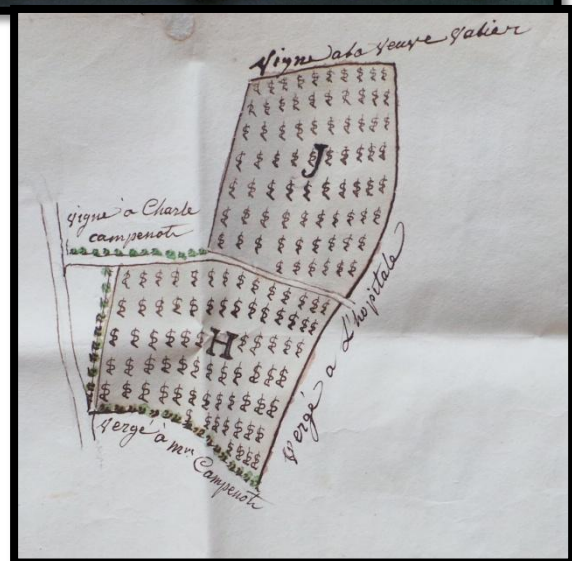 Vigne a la veuve Vabier
J
vigne a Charle
campenoti
H
Vergé a L'hopitale
Vergé à mr. Campenoti